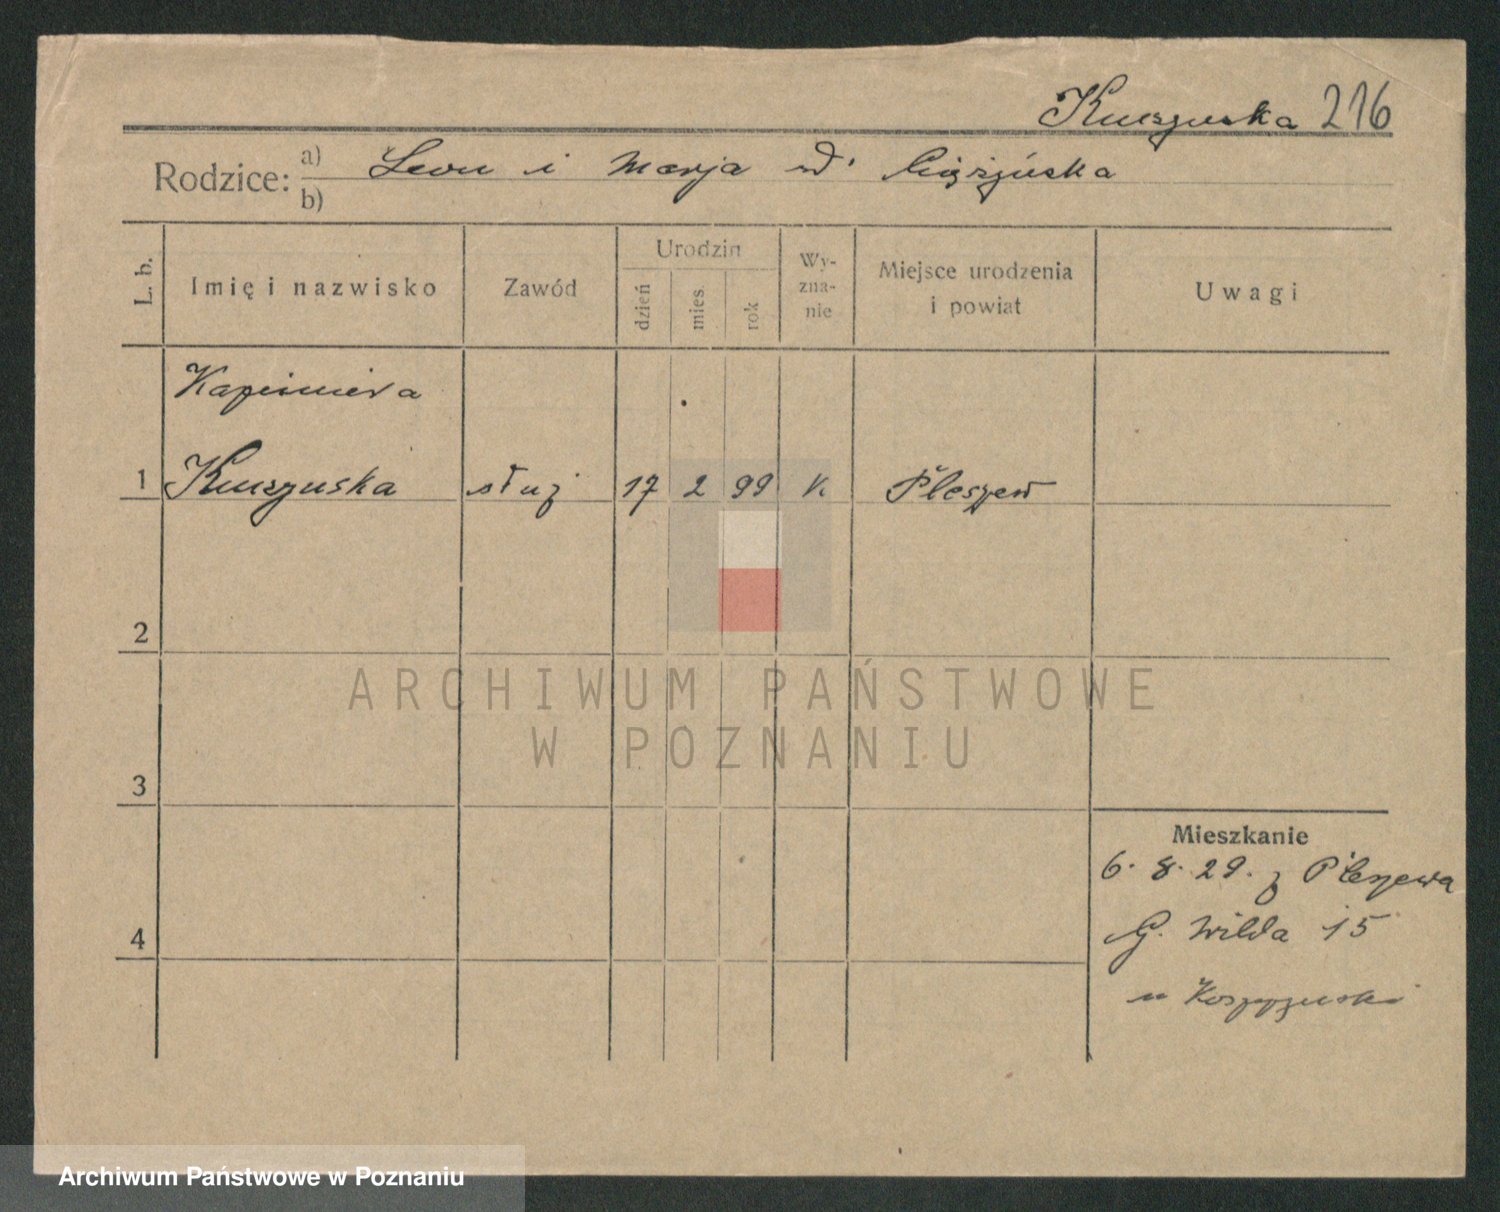 Kuszuska 216
Rodzice: a) Leon i Marja d. Ciążyńska
b)
L. b.
Imię i nazwisko
Zawód
Urodzin
dzień
mies.
rok
Wy-
zna-
nie
Miejsce urodzenia
i powiat
Uwagi
Kazimiera
1 Kuszuska służ 17 2 99 k Pleszew
2
3
4
Mieszkanie
6. 8. 29. z Pleszewa
G. Wilda 15
u
ARCHIWUM PAŃSTWOWE
W POZNANIU
Archiwum Państwowe w Poznaniu